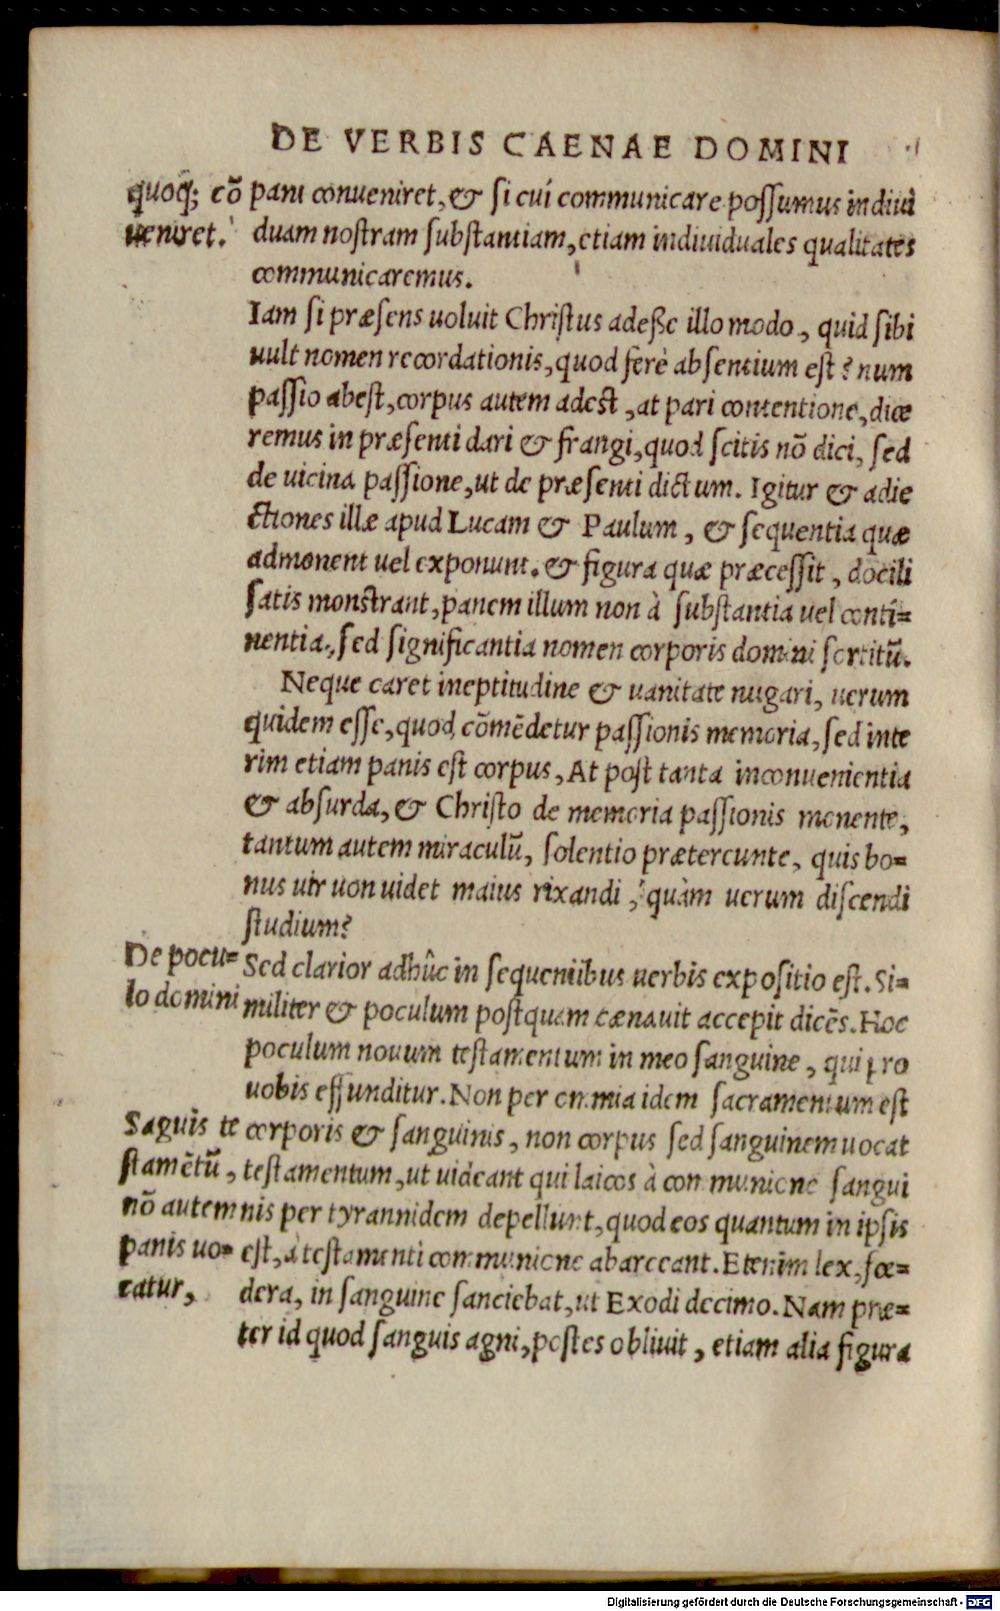 DE VERBIS CAENAE DOMINI
quoq; cō
ueniret.
pani conueniret, & si cui communicare possumus indiui
duam nostram substantiam, etiam indiuiduales qualitates
communicaremus.
Iam si præsens uoluit Christus adeße illo modo, quid sibi
uult nomen recordationis, quod ferè absentium est? num
passio abest, corpus autem adest, at pari contentione, dice
remus in præsenti dari & frangi, quod scitis nō dici, sed
de uicina passione, ut de præsenti dictum. Igitur & adie
ctiones illæ apud Lucam & Paulum, & sequentia quæ
admonent uel exponunt. & figura quæ præcessit, docili
satis monstrant, panem illum non à substantia uel conti=
nentia, sed significantia nomen corporis domini sortitū.
Neque caret ineptitudine & uanitate nugari, uerum
quidem esse, quod cōmēdetur passionis memoria, sed inte
rim etiam panis est corpus, At post tanta inconuenientia
& absurda, & Christo de memoria passionis monente,
tantum autem miraculū, solentio prætereunte, quis bo=
nus uir uon uidet maius rixandi, quàm uerum discendi
studium?
De pocu=
lo domini
Sed clarior adhûc in sequentibus uerbis expositio est. Si=
militer & poculum postquam cænauit accepit dicēs. Hoc
poculum nouum testamentum in meo sanguine, qui pro
uobis effunditur. Non per omnia idem sacramentum est
Sāguis te
stamētū,
nō autem
panis uo=
catur,
corporis & sanguinis, non corpus sed sanguinem uocat
testamentum, ut uideant qui laicos à communione sangui
nis per tyrannidem depellunt, quod eos quantum in ipsis
est, à testamenti communione abarceant. Etenim lex, fœ=
dera, in sanguine sanciebat, ut Exodi decimo. Nam præ=
ter id quod sanguis agni, postes obliuit, etiam alia figura
Digitalisierung gefördert durch die Deutsche Forschungsgemeinschaft - DFG